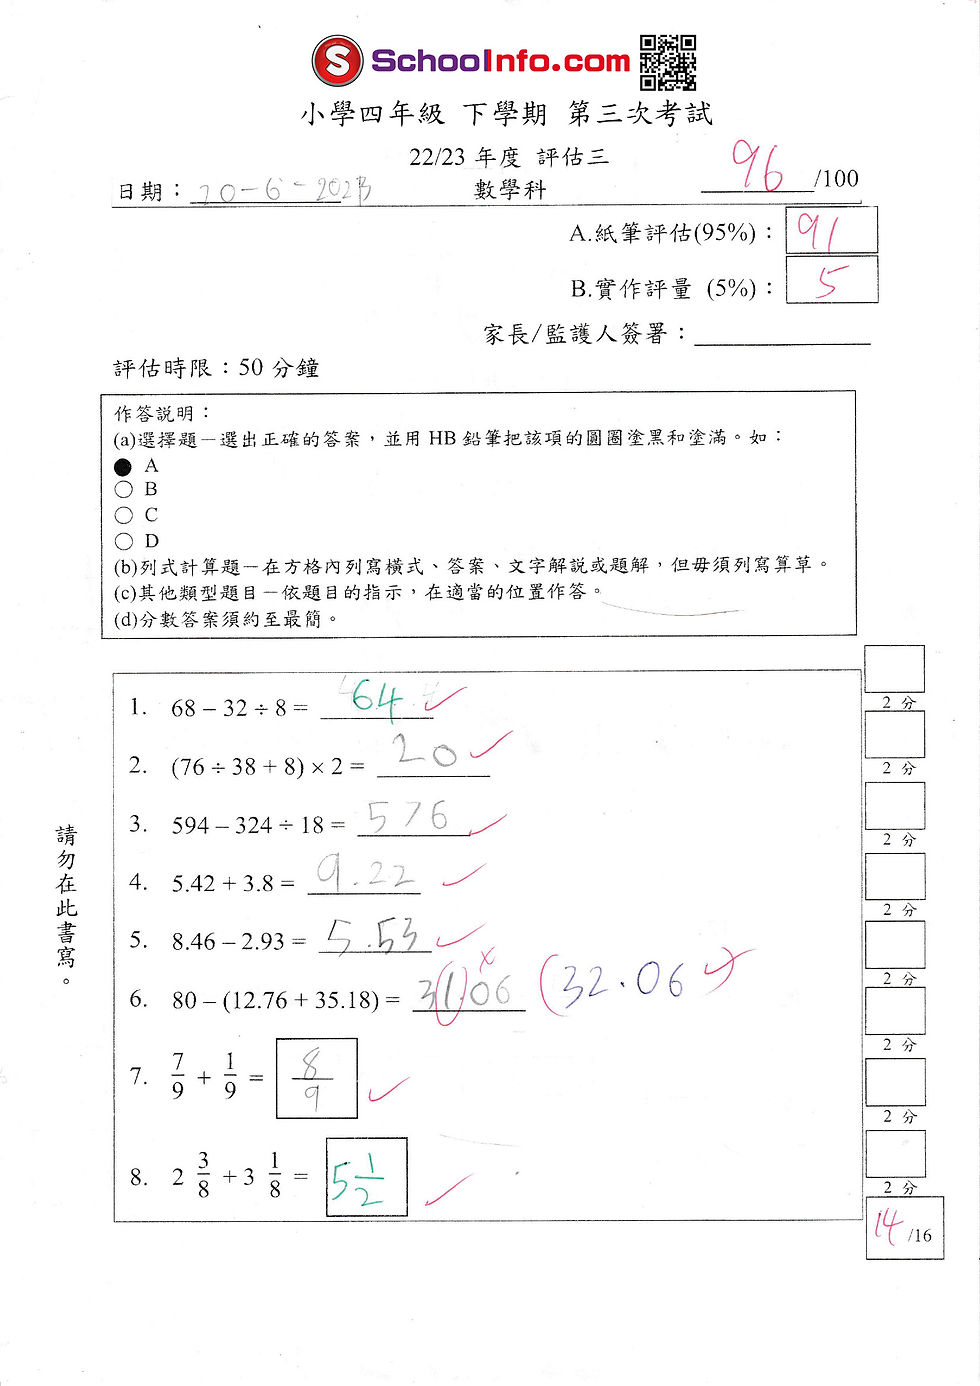 S SchoolInfo.com
小學四年級 下學期 第三次考試
22/23 年度 評估三
日期：20-6-2023 數學科 96/100
A.紙筆評估(95%)： 91
B.實作評量 (5%)： 5
家長/監護人簽署：
評估時限：50 分鐘
作答說明：
(a)選擇題－選出正確的答案，並用 HB 鉛筆把該項的圓圈塗黑和塗滿。如：
A
B
C
D
(b)列式計算題－在方格內列寫橫式、答案、文字解說或題解，但毋須列寫算草。
(c)其他類型題目－依題目的指示，在適當的位置作答。
(d)分數答案須約至最簡。
1. 68 – 32 ÷ 8 = 64
2 分
2. (76 ÷ 38 + 8) × 2 = 20
2 分
3. 594 – 324 ÷ 18 = 576
2 分
4. 5.42 + 3.8 = 9.22
2 分
5. 8.46 – 2.93 = 5.53
2 分
6. 80 – (12.76 + 35.18) = 31.06 (32.06
2 分
7. 7/9 + 1/9 = 8/9
2 分
8. 2 3/8 + 3 1/8 = 5 1/2
2 分
14/16
請勿在此書寫。